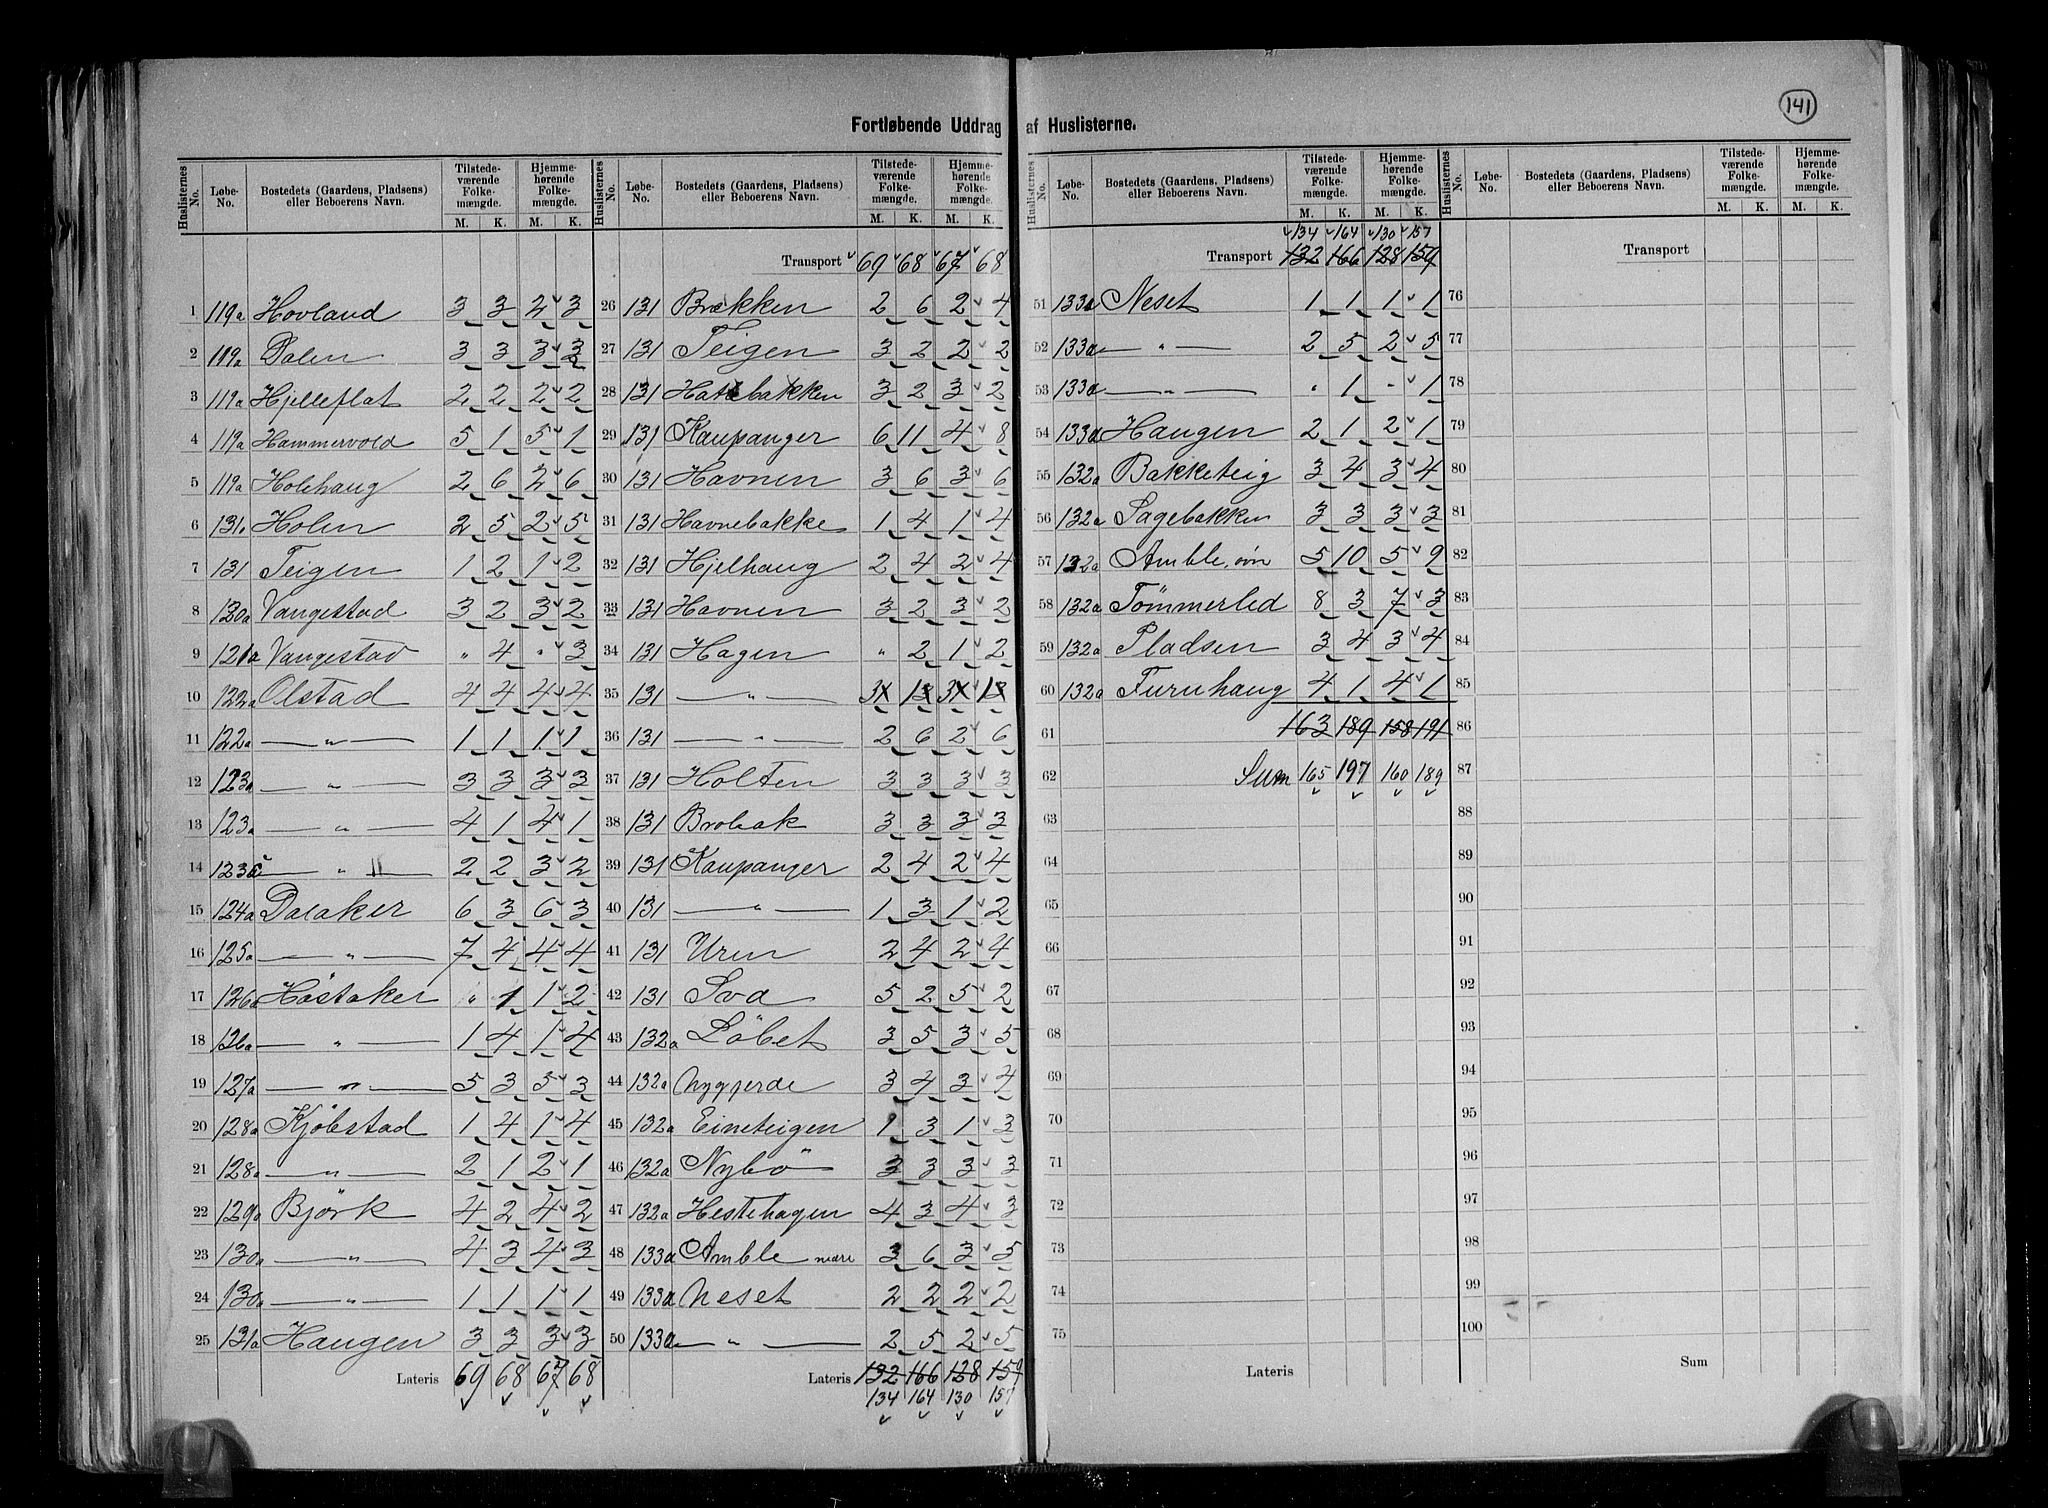 141
Fortløbende Uddrag af Huslisterne.
Huslisternes No. Løbe-No. Bostedets (Gaardens, Pladsens) eller Beboerens Navn. Tilstedeværende Folkemængde. M. K. Hjemmehørende Folkemængde. M. K.
1 119a Hovland 3 3 2 3
2 119a Dalen 3 3 3 3
3 119a Hjelleflat 2 2 2 2
4 119a Hammervold 5 1 5 1
5 119a Holehaug 2 6 2 6
6 131. Holen 2 5 2 5
7 131 Teigen 1 2 1 2
8 120a Vangestad 3 2 3 2
9 121a Vangestad " 4 " 3
10 122a Olstad 4 4 4 4
11 122a — " — 1 1 1 1
12 123a — " — 3 3 3 3
13 123a — " — 4 1 4 1
14 123a — " — 2 2 3 2
15 124a Dalaker 6 3 6 3
16 125a — " — 7 4 4 4
17 126a Håstaker " 1 1 2
18 126a — " — 1 4 1 4
19 127a — " — 5 3 5 3
20 128a Kjöbstad 1 4 1 4
21 128a — " — 2 1 2 1
22 129a Björk 4 2 4 2
23 130a — " — 4 3 4 3
24 130a — " — 1 1 1 1
25 131a Haugen 3 3 3 3
Lateris 69 68 67 68
Huslisternes No. Løbe-No. Bostedets (Gaardens, Pladsens) eller Beboerens Navn. Tilstedeværende Folkemængde. M. K. Hjemmehørende Folkemængde. M. K.
Transport 69 68 67 68
26 131 Brækken 2 6 2 4
27 131 Teigen 3 2 2 2
28 131 Hattebakken 3 2 3 2
29 131 Kaupanger 6 11 4 8
30 131 Havnen 3 6 3 6
31 131 Havnebakke 1 4 1 4
32 131 Hjelhaug 2 4 2 4
33 131 Havnen 3 2 3 2
34 131 Hagen " 2 1 2
35 131 — " — 3 1 3 1
36 131 — " — 2 6 2 6
37 131 Holten 3 3 3 3
38 131 Brobak 3 3 3 3
39 131 Kaupanger 2 4 2 4
40 131 — " — 1 3 1 2
41 131 Uren 2 4 2 4
42 131 Sva 5 2 5 2
43 132a Löbet 3 5 3 5
44 132a Nygjerde 3 4 3 4
45 132a Eineteigen 1 3 1 3
46 132a Nybö 3 3 3 3
47 132a Hestehagen 4 3 4 3
48 133a Amble nedre 3 6 3 5
49 133a Neset 2 2 2 2
50 133a — " — 2 5 2 5
Lateris 132 166 128 159
134 164 130 157
Huslisternes No. Løbe-No. Bostedets (Gaardens, Pladsens) eller Beboerens Navn. Tilstedeværende Folkemængde. M. K. Hjemmehørende Folkemængde. M. K.
134 164 130 157
Transport 132 166 128 159
51 133a Neset 1 1 1 1
52 133a — " — 2 5 2 5
53 133a — " — " 1 " 1
54 133a Haugen 2 1 2 1
55 132a Bakketeig 3 4 3 4
56 132a Sagebakken 3 3 3 3
57 132a Amble, övr 5 10 5 9
58 132a Tömmerlid 8 3 7 3
59 132a Pladsen 3 4 3 4
60 132a Furuhaug 4 1 4 1
61 163 189 158 191
62 Sum 165 197 160 189
63
64
65
66
67
68
69
70
71
72
73
74
75
Lateris
Huslisternes No. Løbe-No. Bostedets (Gaardens, Pladsens) eller Beboerens Navn. Tilstedeværende Folkemængde. M. K. Hjemmehørende Folkemængde. M. K.
Transport
76
77
78
79
80
81
82
83
84
85
86
87
88
89
90
91
92
93
94
95
96
97
98
99
100
Sum